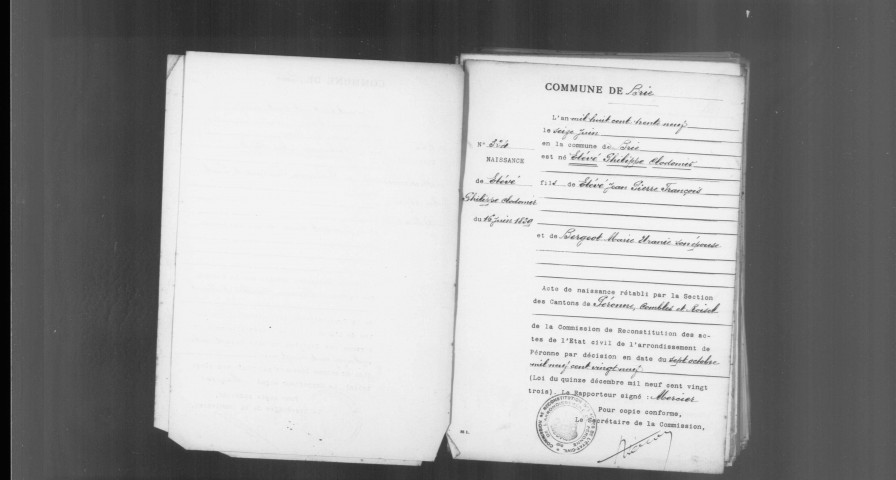 COMMUNE DE Brie
L'an mil huit cent trente neuf
le seize juin
N°
en la commune de Brie
NAISSANCE
est né Etévé Philippe Clodomir
de Etévé
fils de Etévé Jean Pierre François
Philippe Clodomir
du 16 juin 1839
et de Bergeot Marie son épouse
Acte de naissance rétabli par la Section
des Cantons de Péronne, Combles et Roisel
de la Commission de Reconstitution des ac-
tes de l'Etat civil de l'arrondissement de
Péronne par décision en date du sept octobre
mil neuf cent vingt neuf
(Loi du quinze décembre mil neuf cent vingt
trois). Le Rapporteur signé : Mercier
Pour copie conforme,
Le Secrétaire de la Commission,